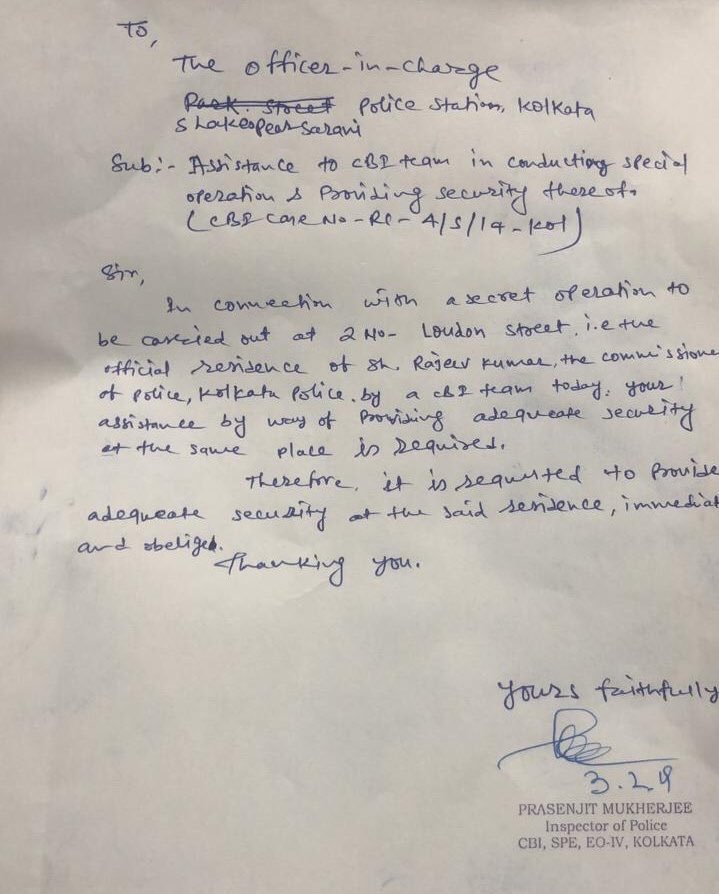 To,
The officer-in-charge
Park street Police Station, Kolkata
Shakespear Sarani
Sub:- Assistance to CBI team in conducting special
operation & Providing security thereof.
(CBI Case No-RC-4/S/14-Kol)
Sir,
In connection with a secret operation to
be carried out at 2 No- Loudon street, i.e the
official residence of Sh. Rajeev Kumar, the commissione
of police, Kolkata Police, by a CBI team today, your
assistance by way of Providing adequeate security
at the same place is required.
Therefore, it is requsted to Provide
adequeate security at the said residence, immediat
and obelige.
Thanking you.
Yours faithfully
3.2.19
PRASENJIT MUKHERJEE
Inspector of Police
CBI, SPE, EO-IV, KOLKATA